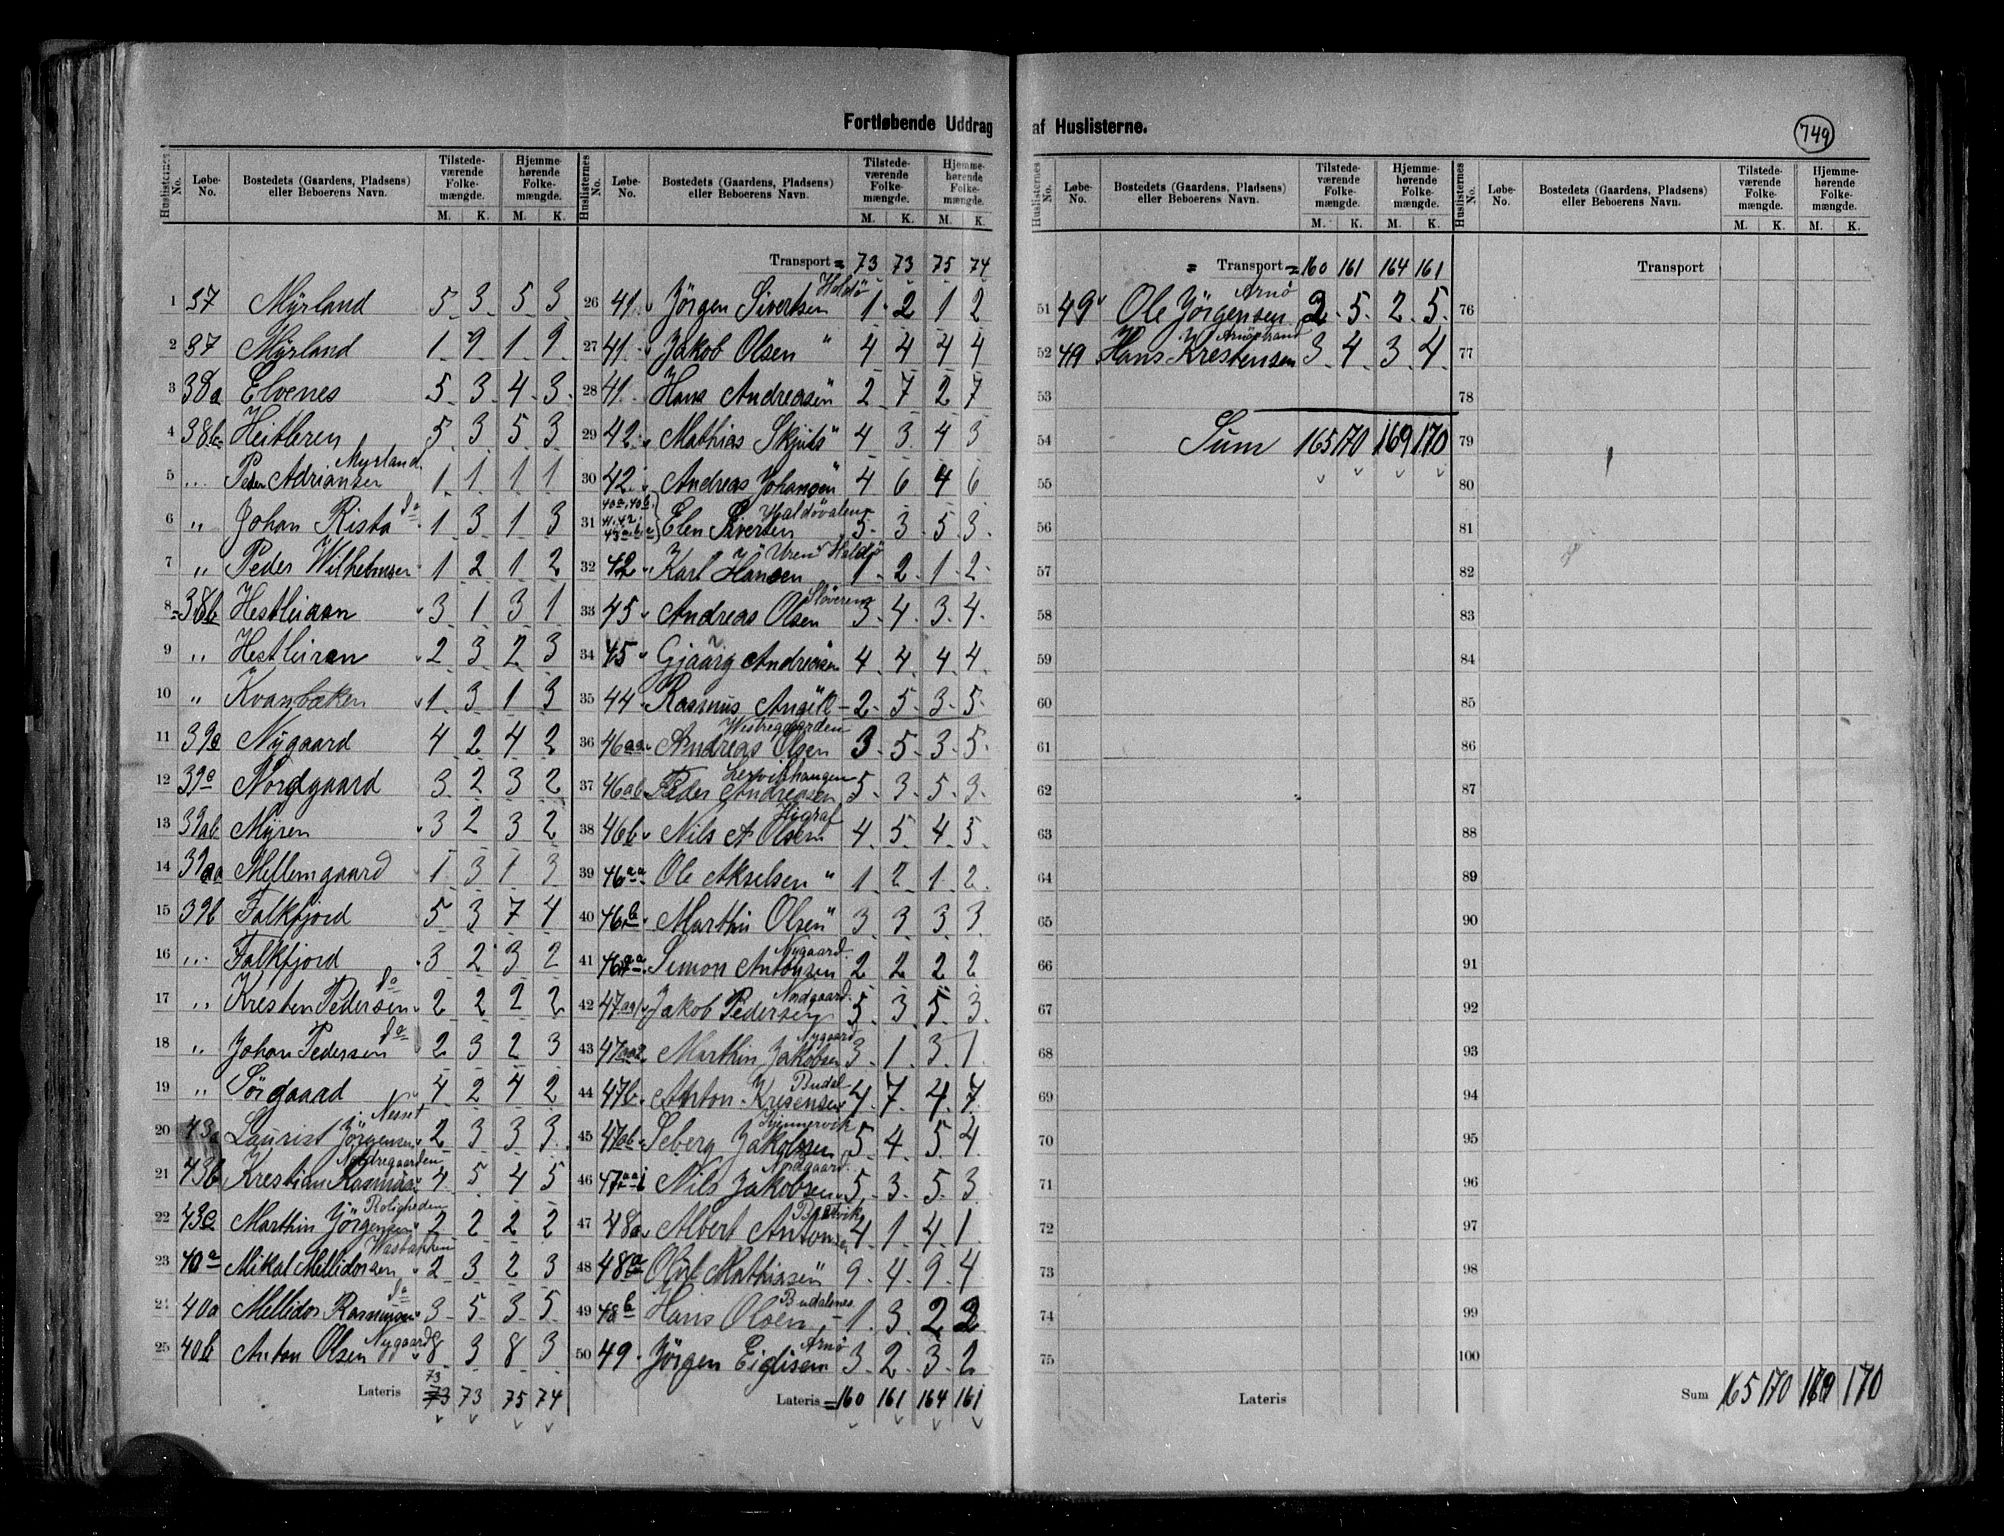 Fortløbende Uddrag af Huslisterne.
749
Huslisternes No. Løbe-No. Bostedets (Gaardens, Pladsens) eller Beboerens Navn. Tilstedeværende Folkemængde. M. K. Hjemmehørende Folkemængde. M. K.
1 37 Myrland 5 3 5 3
2 37 Myrland 1 9 1 9
3 38a Elvenes 5 3 4 3
4 38b Heitleren 5 3 5 3
5 " Peder Adriansen Myrland 1 1 1 1
6 " Johan Rista do 1 3 1 3
7 " Peder Wilhelmsen 1 2 1 2
8 38b Hestleiraan 3 1 3 1
9 " Hestleiran 2 3 2 3
10 " Kvanbæken 1 3 1 3
11 39c Nygaard 4 2 4 2
12 39c Nordgaard 3 2 3 2
13 39ab Myren 3 2 3 2
14 39aa Mellemgaard 1 3 1 3
15 39b Falkfjord 5 3 7 4
16 " Falkfjord 3 2 3 2
17 " Kresten Pedersen do 2 2 2 2
18 " Johan Pedersen do 2 3 2 3
19 " Sørgaard 4 2 4 2
20 43a Laurist Jørgensen Nesset 2 3 3 3
21 43b Krestian Rasmus Nordregaarden 4 5 4 5
22 43c Marthin Jørgensen Roligheden 2 2 2 2
23 40a Mikal Mellidorsen 2 3 2 3
24 40a Mellidor Rasmusen do 3 5 3 5
25 40b Anton Olsen Nygaard 8 3 8 3
73
Lateris 73 73 75 74
Huslisternes No. Løbe-No. Bostedets (Gaardens, Pladsens) eller Beboerens Navn. Tilstedeværende Folkemængde. M. K. Hjemmehørende Folkemængde. M. K.
Transport = 73 73 75 74
26 41 Jørgen Sivertsen Haldø 1 2 1 2
27 41 Jakob Olsen " 4 4 4 4
28 41 Hans Andreasen " 2 7 2 7
29 42 Mathias Skjuls " 4 3 4 3
30 42 Andreas Johansen " 4 6 4 6
31 40a, 40b, 41, 42, Elen Siversen Haldøvalen 5 3 5 3
32 42 Karl Hansen Uren Haldø 1 2 1 2
33 45 Andreas Olsen 3 4 3 4
34 45 Gjaarg Andreasen 4 4 4 4
35 44 Rasmus 2 5 3 5
36 46aa Andreas Olsen Westregaarden 3 5 3 5
37 46ab Peder Andreasen Lervikhaugen 5 3 5 3
38 46b Nils A Olsen Higraf 4 5 4 5
39 46aa Ole Akselsen " 1 2 1 2
40 46b Marthin Olsen " 3 3 3 3
41 46aa Simon Antonsen Nygaard 2 2 2 2
42 47 Jakob Pedersen Nordgaard 5 3 5 3
43 47aa2 Marthin Jakobsen Nygaard 3 1 3 1
44 47b Anton Kresensen Budal 4 7 4 7
45 47ab Seberg Jakobsen Kjennervik 5 4 5 4
46 47aa1 Nils Jakobsen Nordgaard 5 3 5 3
47 48a Albert Antonsen 4 1 4 1
48 48a Oluf Mathiasen " 9 4 9 4
49 48b Hans Olsen Budalenes 1 3 2 2
50 49 Jørgen Eidisen Arnø 3 2 3 2
Lateris = 160 161 164 161
Huslisternes No. Løbe-No. Bostedets (Gaardens, Pladsens) eller Beboerens Navn. Tilstedeværende Folkemængde. M. K. Hjemmehørende Folkemængde. M. K.
= Transport = 160 161 164 161
51 49 Ole Jørgensen Arnø 2 5 2 5
52 49 Hans Krestensen Arnøstrand 3 4 3 4
53
54 Sum 165 170 169 170
55
56
57
58
59
60
61
62
63
64
65
66
67
68
69
70
71
72
73
74
75
Lateris
Huslisternes No. Løbe-No. Bostedets (Gaardens, Pladsens) eller Beboerens Navn. Tilstedeværende Folkemængde. M. K. Hjemmehørende Folkemængde. M. K.
Transport
76
77
78
79
80
81
82
83
84
85
86
87
88
89
90
91
92
93
94
95
96
97
98
99
100
Sum 165 170 169 170